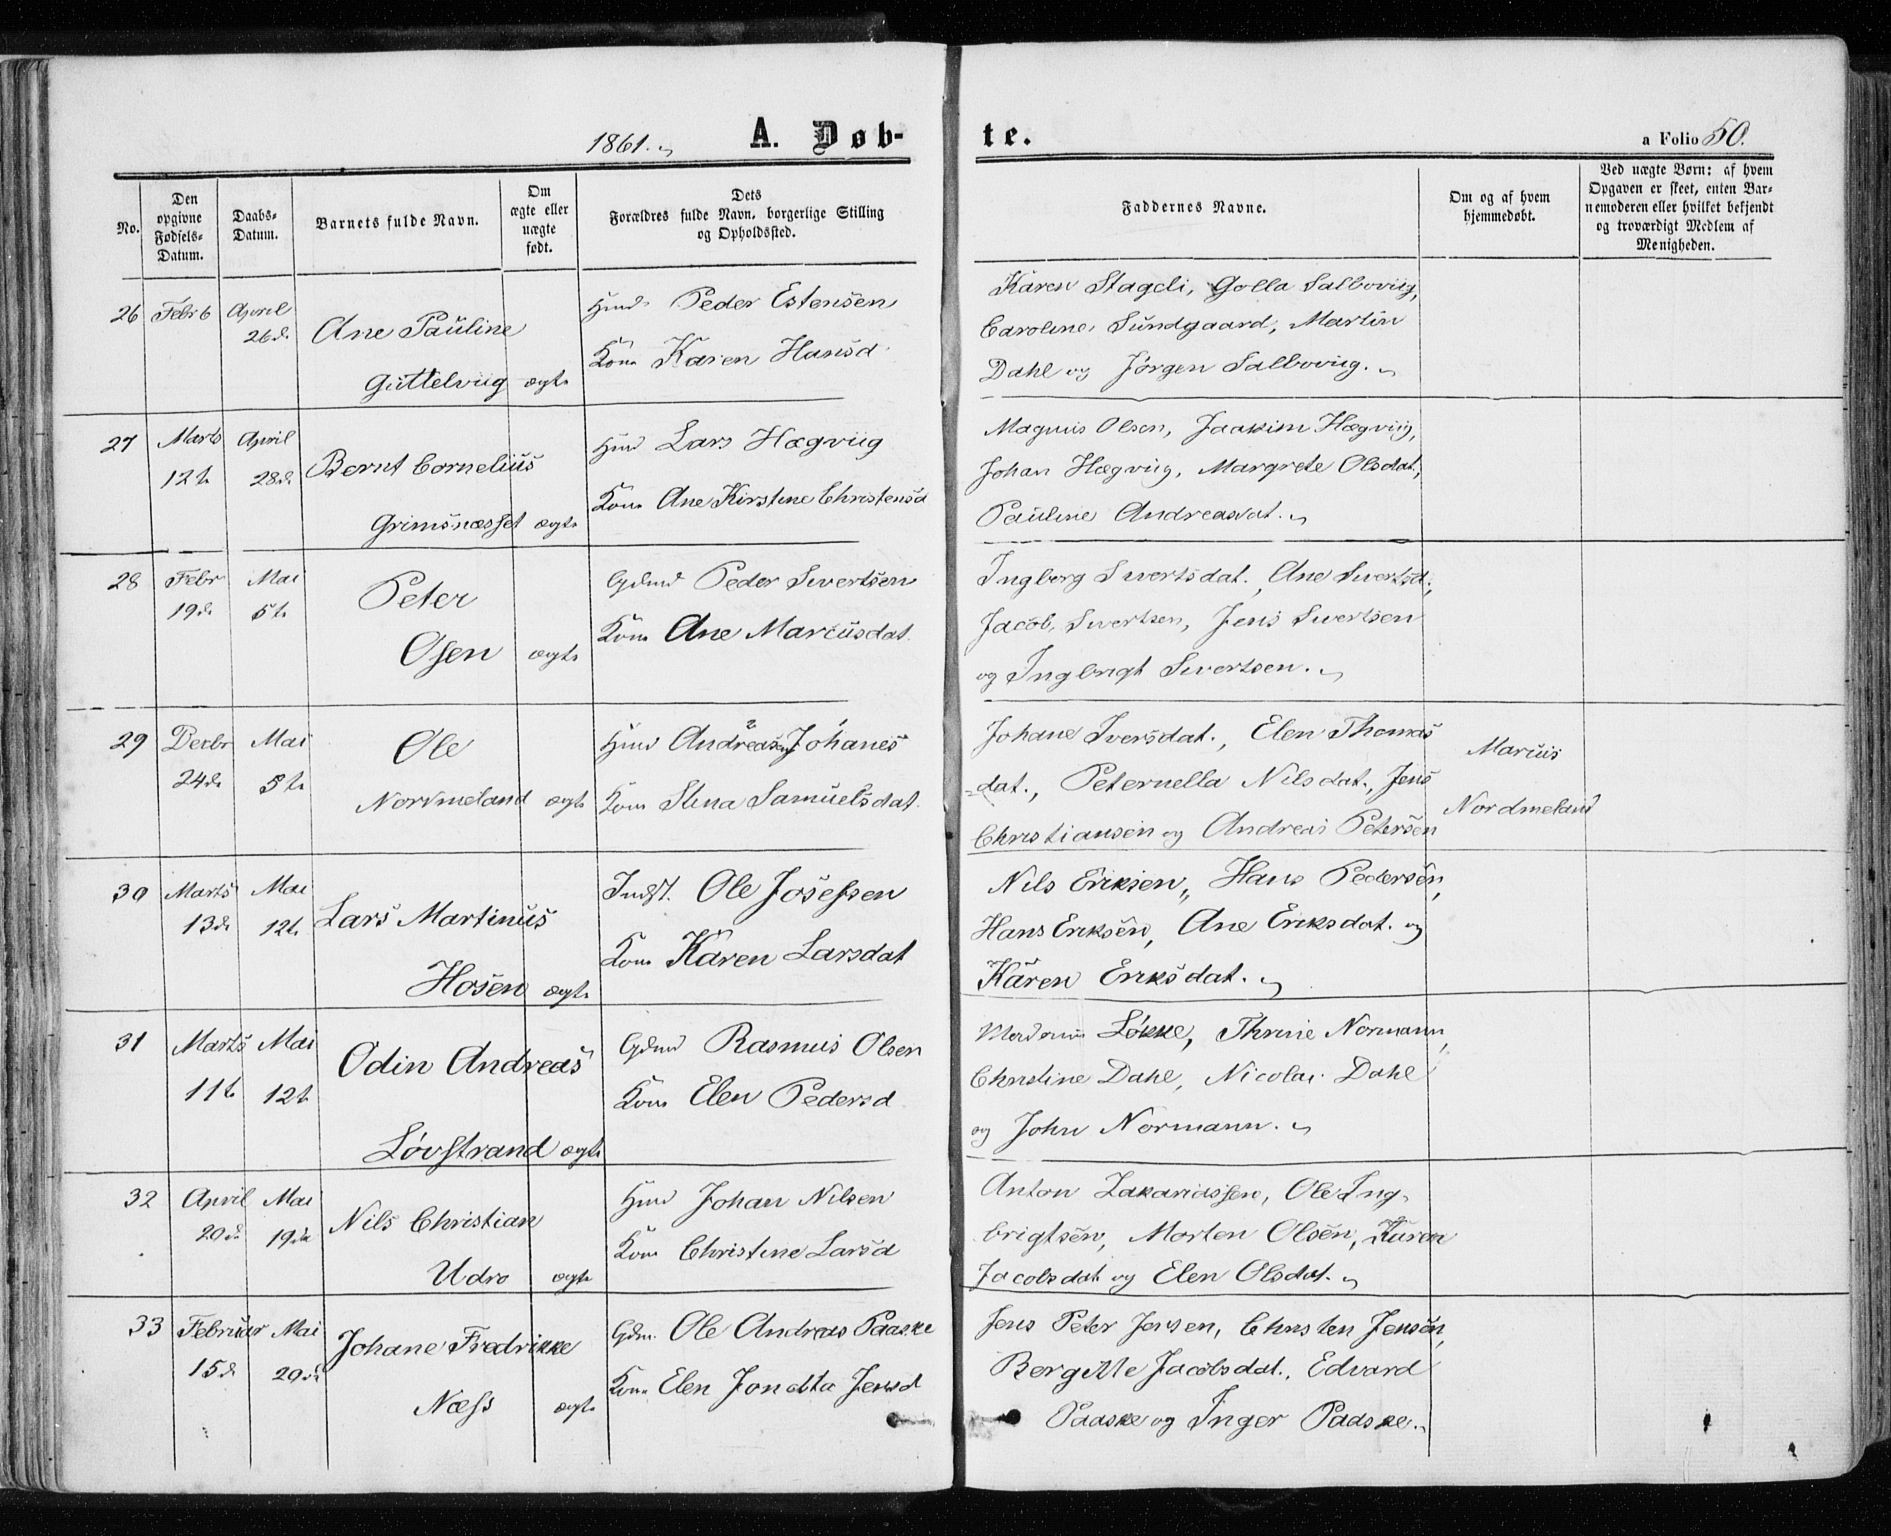 1861. A. Døb-
te.
a Folio 50.
No.
Den
opgivne
Fødsels-
Datum.
Daabs-
Datum.
Barnets fulde Navn.
Om
ægte eller
uægte
født.
Dets
Forældres fulde Navn, borgerlige Stilling
og Opholdssted.
Faddernes Navne.
Om og af hvem
hjemmedøbt.
Ved uægte Børn: af hvem
Opgaven er skeet, enten Bar-
nemoderen eller hvilket bekjendt
og troværdigt Medlem af
Menigheden.
26 Febr 6 April
26d.
Ane Pauline
Guttelviig ægte
Huusd Peder Estensen
Kone Karen Hansd.
Karen Stageli, Golla Salboviig,
Caroline Sundgaard, Martin
Dahl og Jørgen Salboviig.
27 Marts April
12t. 28d.
Bernt Cornelius
Grimsnæsset ægte
Huusd Lars Hægviig
Kone Ane Kirstine Christensd
Magnus Olsen, Joakim Hægviig,
Johan Hægviig, Margrete Olsdat,
Pauline Andreasdat.
28 Febr Mai
19d. 5t.
Peter
Osen ægte
Gdmd Peder Sivertsen
Kone Ane Marcusdat.
Ingberg Sivertsdat., Ane Sivertsd.,
Jacob Sivertsen, Jens Sivertsen
og Ingbrigt Sivertsen.
29 Decbr Mai
24d. 5t.
Ole
Nordmeland ægte
Huusd Andreas Johanes
Kone Stina Samuelsdat.
Johane Iversdat., Elen Thomas
=dat., Peternella Nilsdat., Jens
Christiansen og Andreas Petersen
Marcus
Nordmeland
30 Marts Mai
13d. 12t.
Lars Martinus
Hosen ægte
Indst. Ole Josefsen
Kone Karen Larsdat
Nils Eriksen, Hans Pedersen,
Hans Eriksen, Ane Eriksdat. og
Karen Eriksdat.
31 Marts Mai
11t. 12t.
Odin Andreas
Løvstrand ægte
Gdmd Rasmus Olsen
Kone Elen Pedersd.
Madame Løkke, Thrine Normann,
Christine Dahl, Nicolai Dahl
og John Normann.
32 April Mai
20d. 19de
Nils Christian
Udro ægte
Huusd Johan Nilsen
Kone Christine Larsd
Anton Zakariassen, Ole Ing-
brigtsen, Morten Olsen, Karen
Jacobsdat og Elen Olsdat.
33 Februar Mai
15d. 20d.
Johane Fredrikke
Næss ægte
Gdm. Ole Andreas Paaske
Kone Elen Jonetta Jensd
Jens Peter Jensen, Christen Jensen,
Bergitte Jacobsdat., Edvard
Paaske og Inger Paaske.